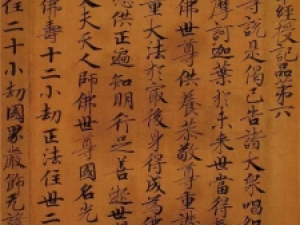 經授記品第六
尊說是偈已告諸大衆唱如
摩訶迦葉於未來世當得
佛世尊供養恭敬尊重讚
量大法於最後身得成為佛
應供正遍知明行足善逝世
丈夫天人師佛世尊國名光
佛壽十二小劫正法住世二
住二十小劫國界嚴飾无諸